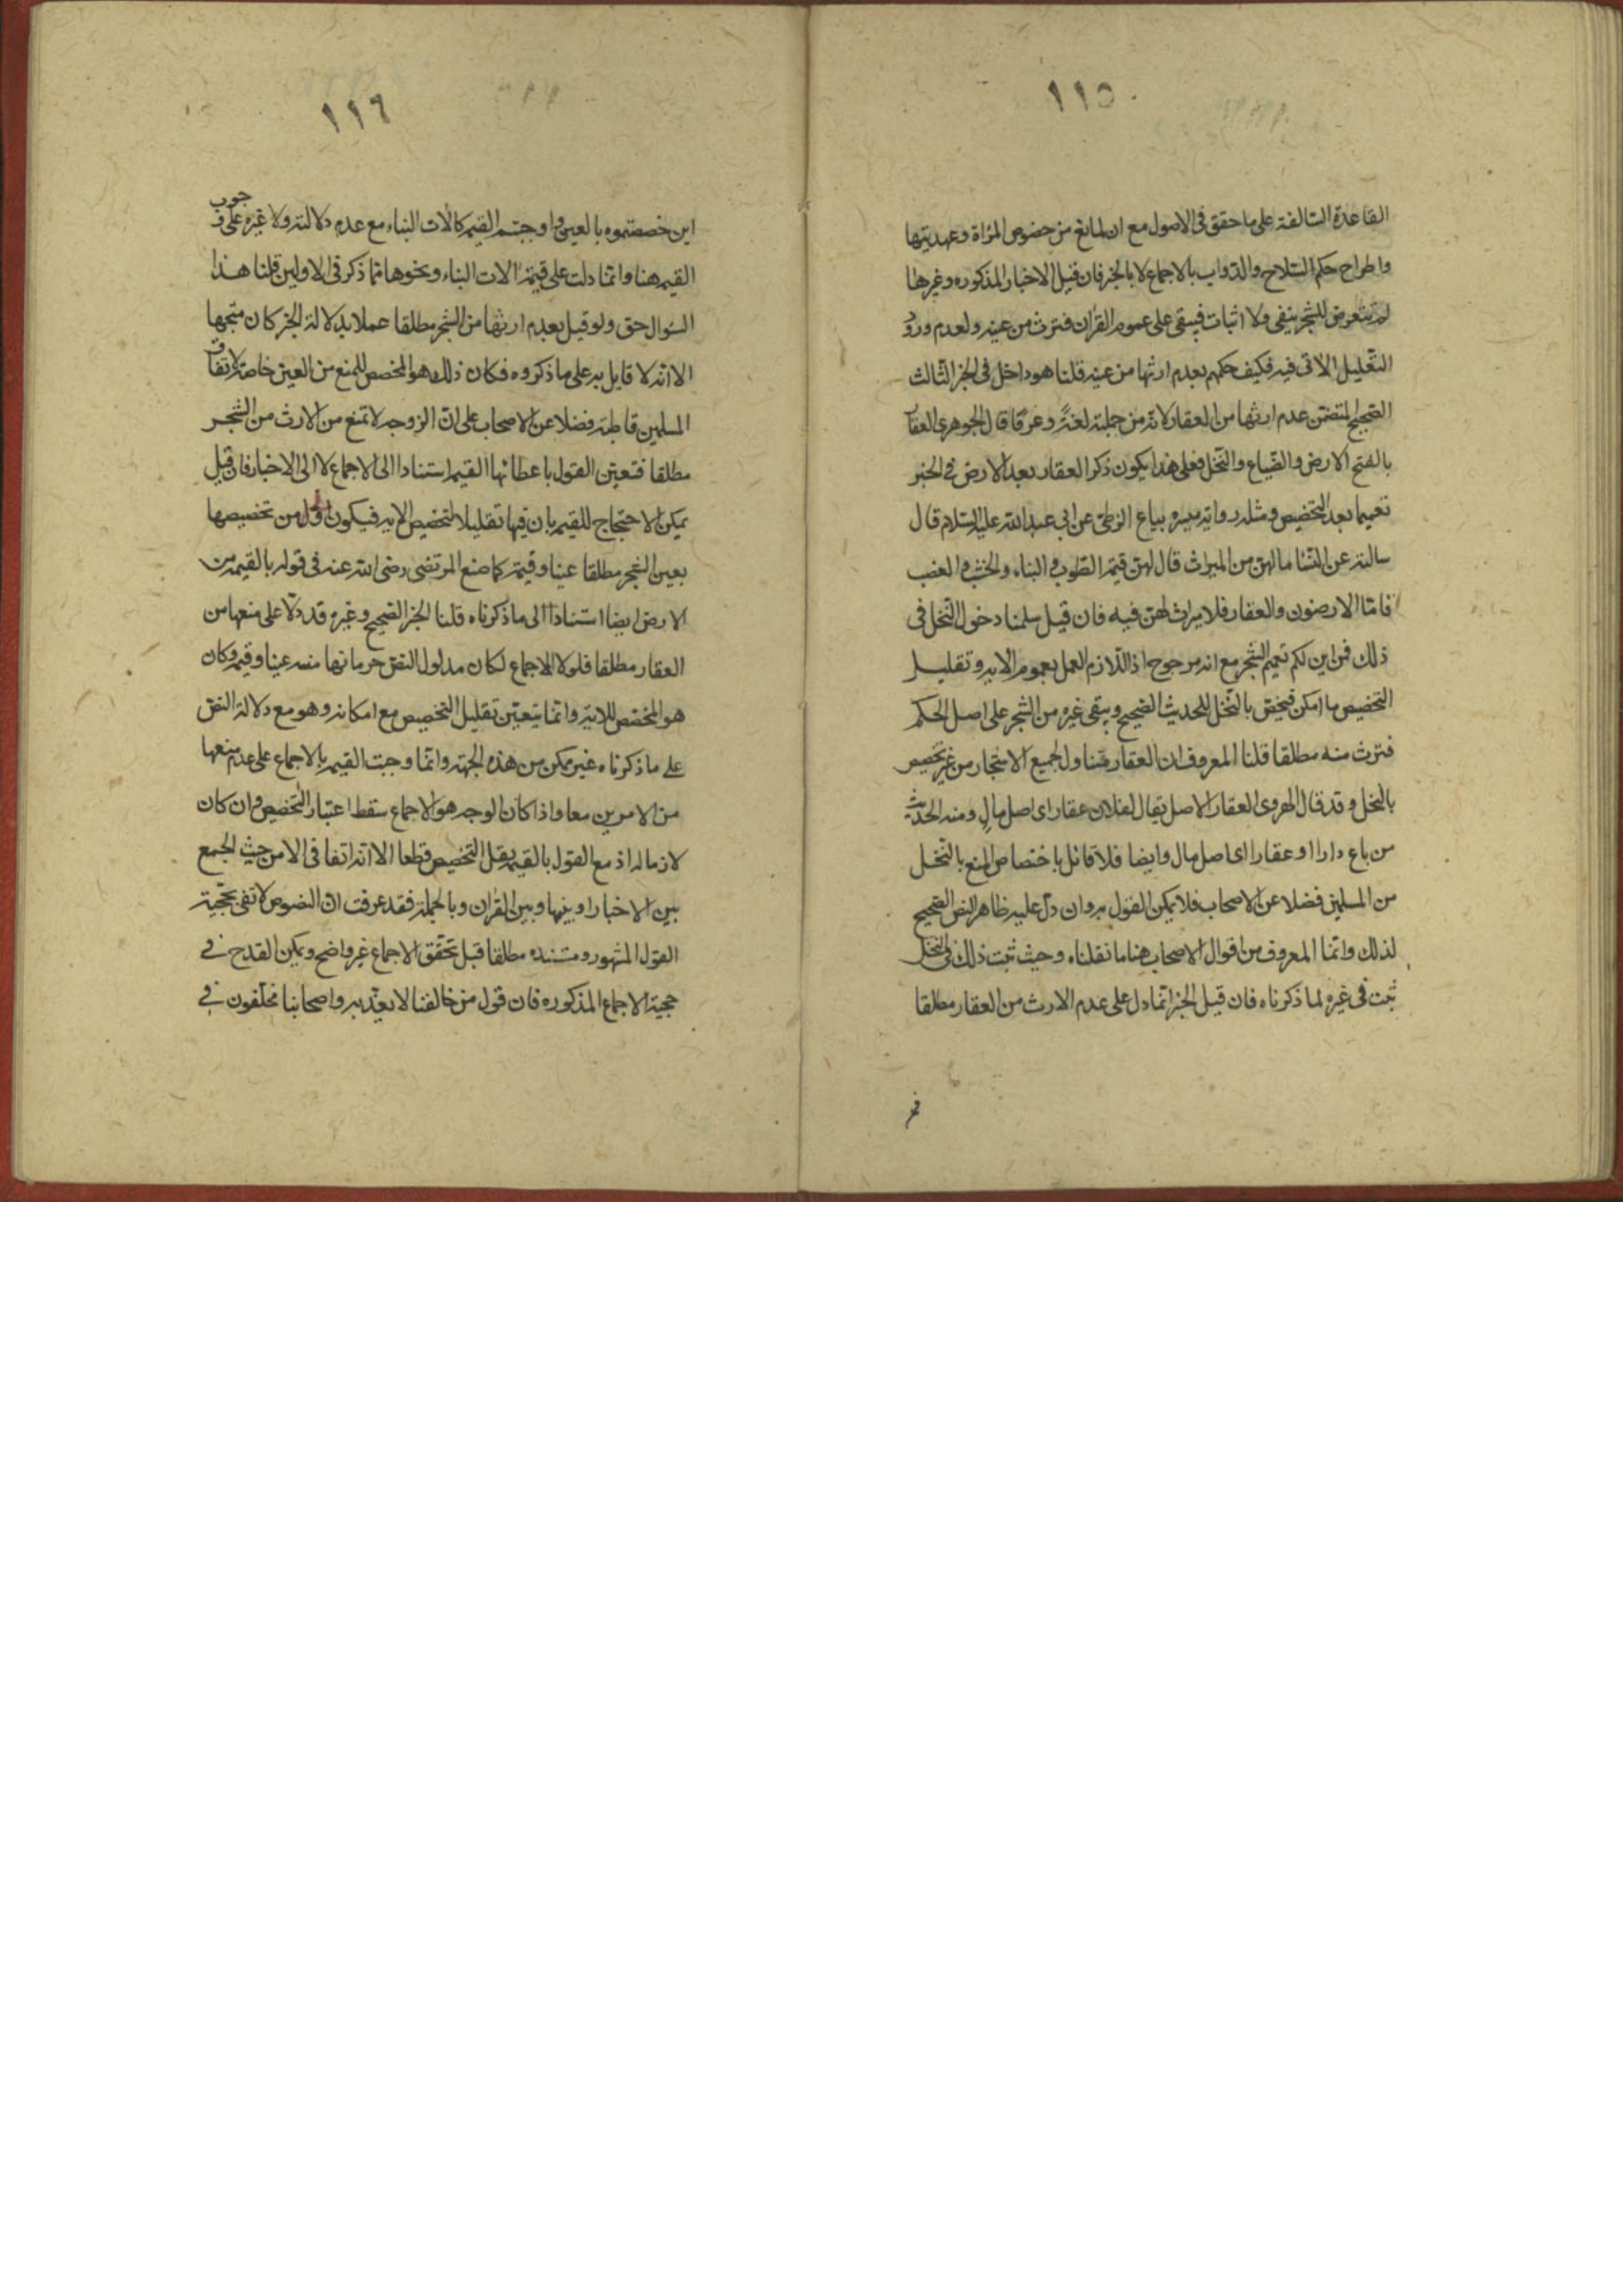 ١١٥
القاعدة السالفة على ما حقق فى الاصول مع ان المانع من خصوص المراة وعهديتها
واطراح حكم السلاح والدواب بالاجماع لا بالخبر فان قيل الاخبار المذكوره وغيرها
لم تتعرض للشجر بنفى ولا اثبات فيبقى على عموم القران فترث من عينه ولعدم ورود
التعليل الاتى فيه فكيف حكمهم بعدم ارثها من عينه قلنا هو داخل فى الخبر الثالث
الصحيح المتضمن عدم ارثها من العقار لانه من جملته لغة وعرفا قال الجوهرى العقار
بالفتح الارض والضياع والنخل فعلى هذا يكون ذكر العقار بعد الارض فى الخبر
تعميما بعد التخصيص ومثله رواية ميسر وبياع الزطى عن ابى عبد الله عليه السلام قال
سالته عن النسا ما لهن من الميراث قال لهن قيمة الطوب والبناء والخشب والقصب
فامّا الارضون والعقار فلا ميراث لهن فيه فان قيل سلمنا دخول النخل فى
ذلك فمن اين لكم تعميم الشجر مع انه مرجوح اذ اللازم العمل بعموم الايه وتقليل
التخصيص ما امكن فيختص بالنخل للحديث الصحيح ويبقى غيره من الشجر على اصل الحكم
فترث منه مطلقا قلنا المعروف ان العقار متناول لجميع الاشجار من غير تخصيص
بالنخل وقد قال الهروى العقار الاصل يقال لفلان عقار اى اصل مال ومنه الحديث
من باع دارا او عقارا اى اصل مال وايضا فلا قائل باختصاص المنع بالنخل
من المسلمين فضلا عن الاصحاب فلا يمكن القول به وان دلّ عليه ظاهر النص الصحيح
لذلك وانما المعروف من اقوال الاصحاب هنا ما نقلناه وحيث ثبت ذلك فى النخل
ثبت فى غيره لما ذكرناه فان قيل الخبر انما دل على عدم الارث من العقار مطلقا
فمن
١١٦
اين خصصتموه بالعين واوجبتم القيمه كالات البناء مع عدم دلالته ولا غيره على وجوب
القيمه هنا وانما دلت على قيمة الات البناء ونحوها مما ذكر فى الاولين قلنا هذا
السؤال حق ولو قيل بعدم ارثها من الشجر مطلقا عملا بدلالة الخبر كان متجها
الا انه لا قايل به على ما ذكروه فكان ذلك هو المخصص للمنع من العين خاصة لاتفاق
المسلمين قاطبة فضلا عن الاصحاب على انّ الزوجه لا تمنع من الارث من الشجر
مطلقا فتعين القول باعطائها القيمه استنادا الى الاجماع لا الى الاخبار فان قيل
يمكن الاحتجاج للقيمه بان فيها تقليلا لتخصيص الايه فيكون اولى من تخصيصها
بعين الشجر مطلقا عينا وقيمة كما صنع المرتضى رضى الله عنه فى قوله بالقيمه من
الارض ايضا استنادا الى ما ذكرناه قلنا الخبر الصحيح وغيره قد دلّا على منعها من
العقار مطلقا فلولا الاجماع لكان مدلول النص حرمانها منه عينا وقيمه وكان
هو المخصص للاية وانما يتعين تقليل التخصيص مع امكانه وهو مع دلالة النص
على ما ذكرناه غير ممكن من هذه الجهة وانما وجبت القيمه بالاجماع على عدم منعها
من الامرين معا واذا كان الوجه هو الاجماع سقط اعتبار التخصيص وان كان
لازما له اذ مع القول بالقيمه يقل التخصيص قطعا الا انه اتفاقى لا من حيث الجمع
بين الاخبار او بينها وبين القران وبالجمله فقد عرفت انّ النصوص لا تفى بحجية
القول المشهور ومستنده مطلقا قبل تحقق الاجماع غير واضح ويمكن القدح فى
حجية الاجماع المذكوره فان قول من خالفنا لا يعتد به واصحابنا مختلفون فى